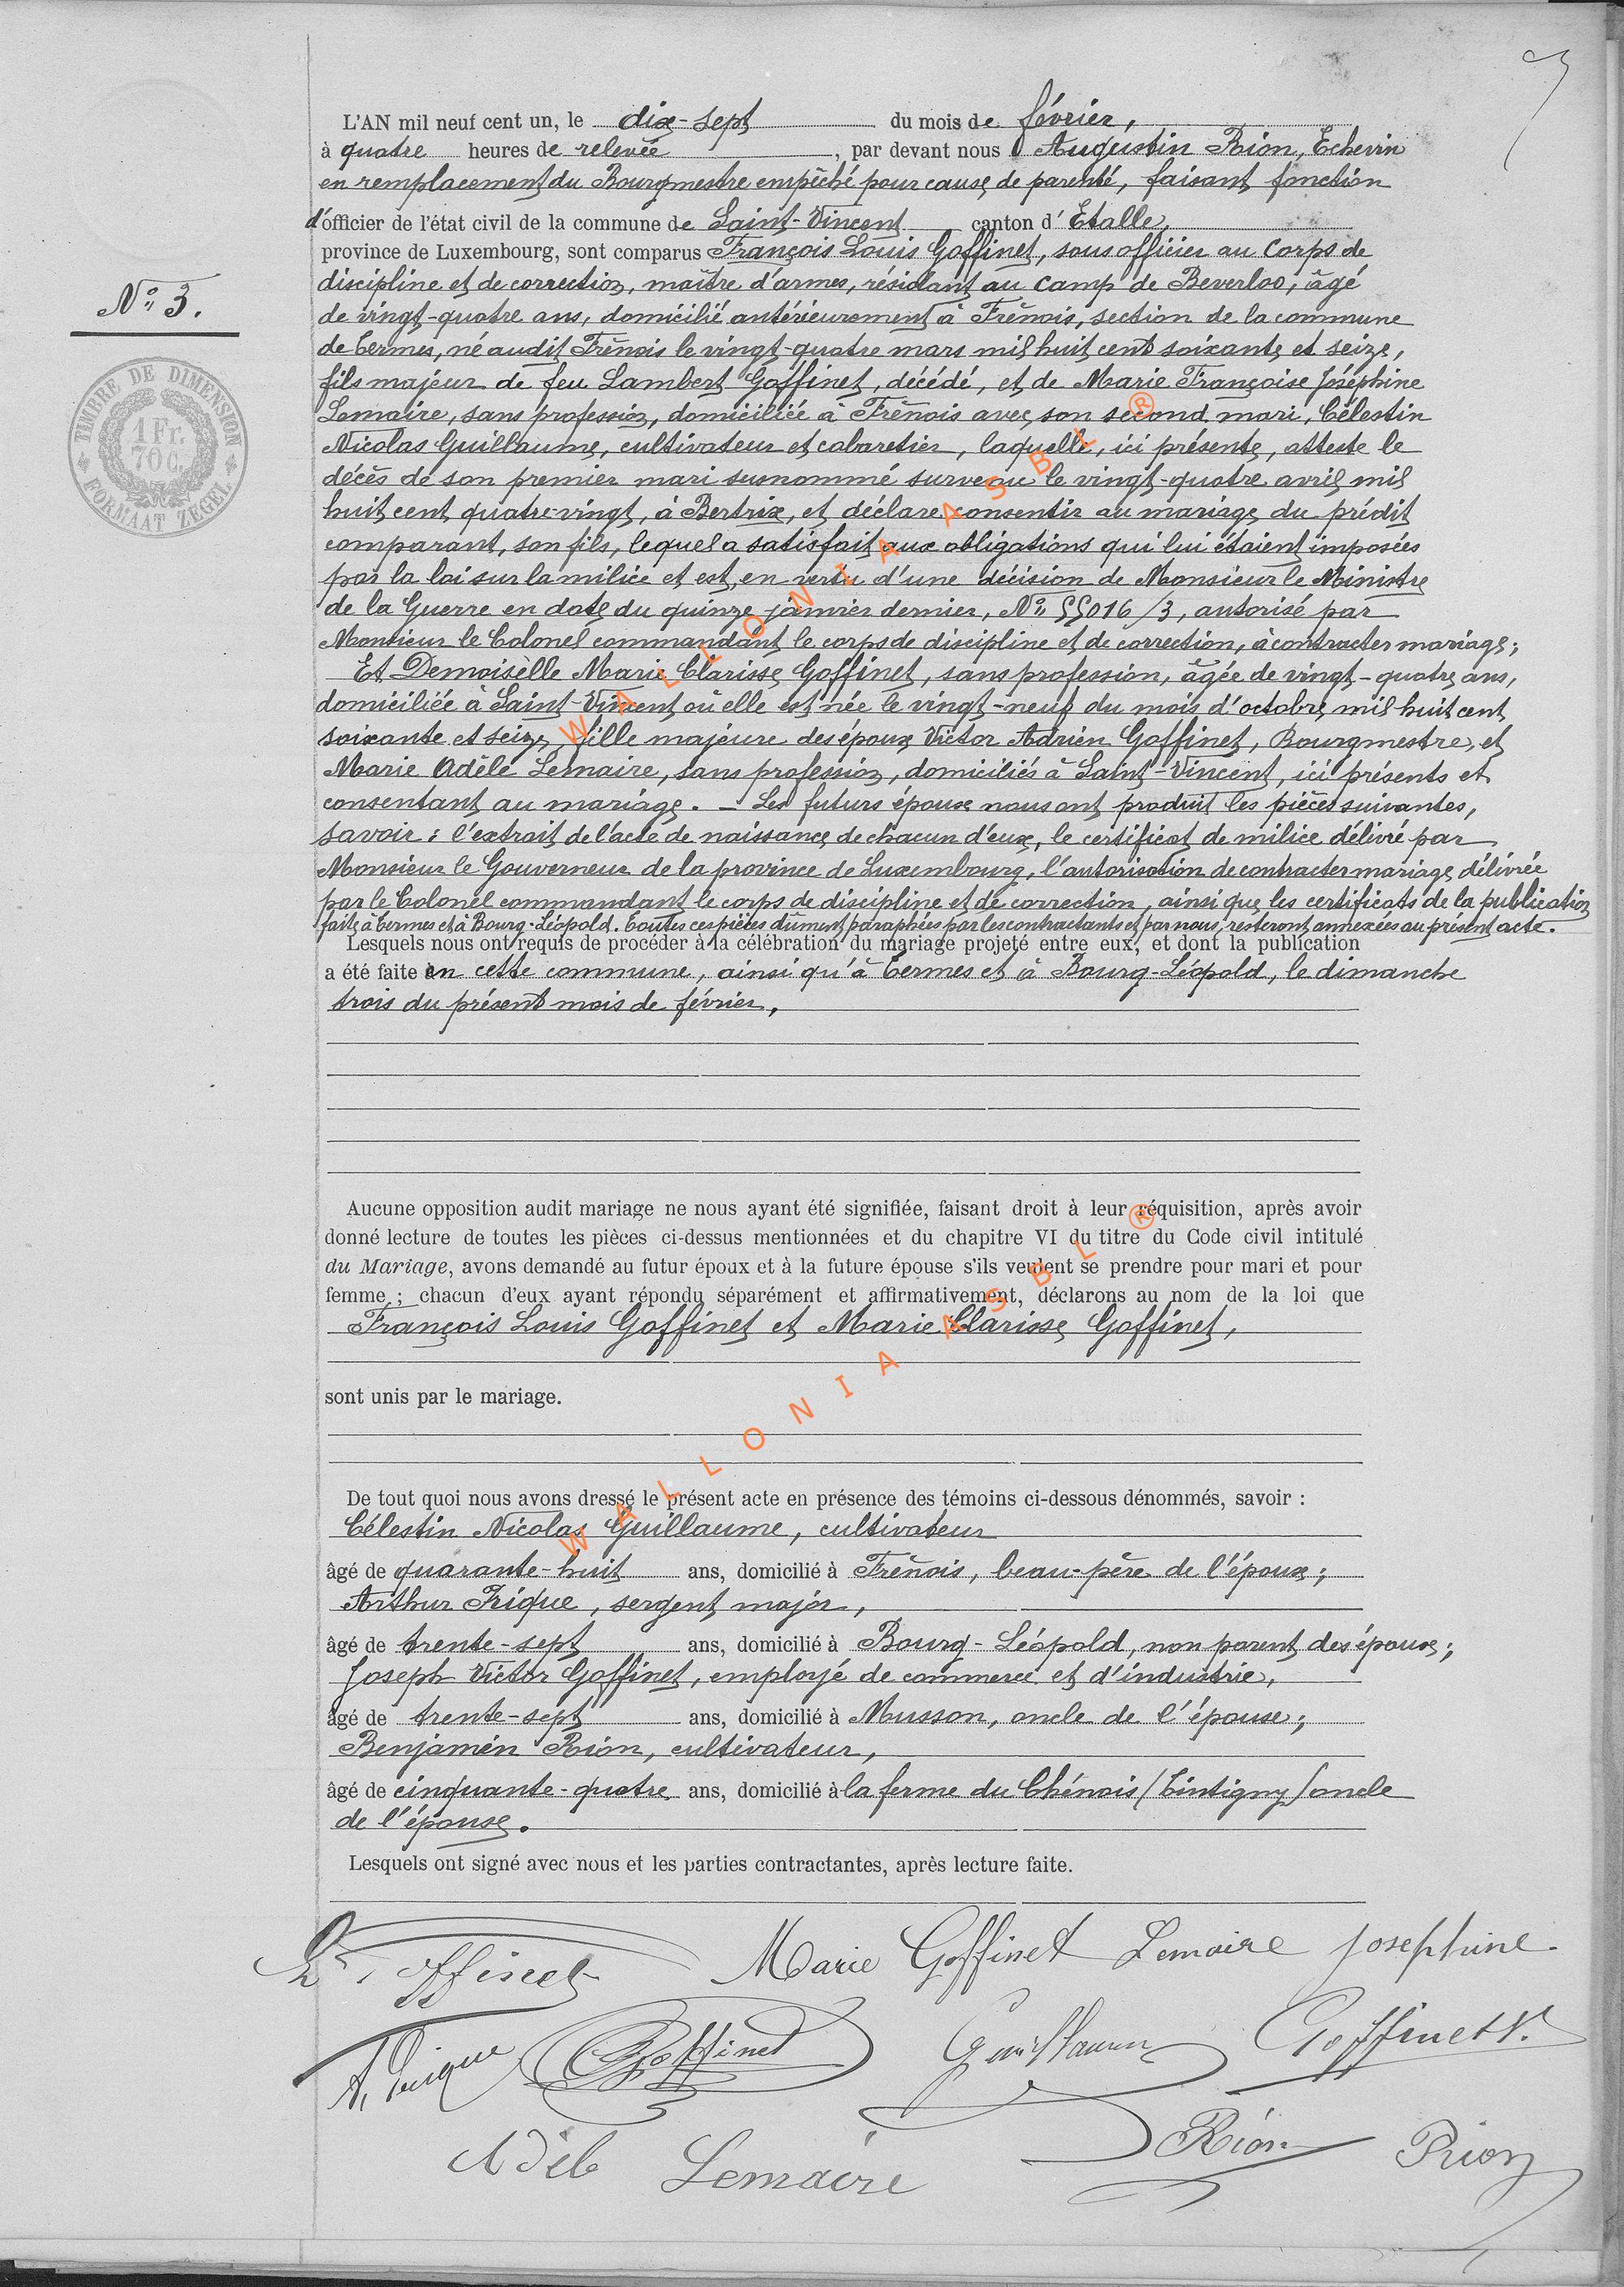 3
L'AN mil neuf cent un, le dix-sept du mois de février,
à quatre heures de relevée, par devant nous Augustin Rion, Echevin
en remplacement du Bourgmestre empêché pour cause de parenté, faisant fonction
d'officier de l'état civil de la commune de Saint-Vincent canton d'Etalle,
province de Luxembourg, sont comparus François Louis Goffinet, sous officier au Corps de
discipline et de correction, maître d'armes, résidant au Camp de Beverloo, âgé
N° 3.
de vingt-quatre ans, domicilié antérieurement à Frênois, section de la commune
de Termes, né audit Frênois le vingt-quatre mars mil huit cent soixante et seize,
TIMBRE DE DIMENSION
1 Fr.
70 C.
FORMAAT ZEGEL
fils majeur de feu Lambert Goffinet, décédé, et de Marie Françoise Joséphine
Lemaire, sans profession, domiciliée à Frênois avec son second mari, Célestin
Nicolas Guillaume, cultivateur et cabaretier, laquelle, ici présente, atteste le
décès de son premier mari susnommé survenu le vingt-quatre avril mil
huit cent quatre-vingt, à Bertrix, et déclare consentir au mariage du prédit
comparant, son fils, lequel a satisfait aux obligations qui lui étaient imposées
par la loi sur la milice et est, en vertu d'une décision de Monsieur le Ministre
de la Guerre en date du quinze janvier dernier, N° 55016/3, autorisé par
Monsieur le Colonel commandant le corps de discipline et de correction, à contracter mariage;
Et Demoiselle Marie Clarisse Goffinet, sans profession, âgée de vingt-quatre ans,
domiciliée à Saint-Vincent où elle est née le vingt-neuf du mois d'octobre mil huit cent
soixante et seize, fille majeure des époux Victor Adrien Goffinet, Bourgmestre, et
Marie Adèle Lemaire, sans profession, domiciliés à Saint-Vincent, ici présents et
consentant au mariage. — Les futurs époux nous ont produit les pièces suivantes,
savoir: l'extrait de l'acte de naissance de chacun d'eux, le certificat de milice délivré par
Monsieur le Gouverneur de la province de Luxembourg, l'autorisation de contracter mariage délivrée
par le Colonel commandant le corps de discipline et de correction, ainsi que les certificats de la publication
faite à Termes et à Bourg-Léopold. Toutes ces pièces dûment paraphées par les contractants et par nous, resteront annexées au présent acte.
Lesquels nous ont requis de procéder à la célébration du mariage projeté entre eux, et dont la publication
a été faite en cette commune, ainsi qu'à Termes et à Bourg-Léopold, le dimanche
trois du présent mois de février,
WALLONIA ASBL ®
Aucune opposition audit mariage ne nous ayant été signifiée, faisant droit à leur réquisition, après avoir
donné lecture de toutes les pièces ci-dessus mentionnées et du chapitre VI du titre du Code civil intitulé
du Mariage, avons demandé au futur époux et à la future épouse s'ils veulent se prendre pour mari et pour
femme ; chacun d'eux ayant répondu séparément et affirmativement, déclarons au nom de la loi que
François Louis Goffinet et Marie Clarisse Goffinet,
sont unis par le mariage.
WALLONIA ASBL ®
De tout quoi nous avons dressé le présent acte en présence des témoins ci-dessous dénommés, savoir :
Célestin Nicolas Guillaume, cultivateur
âgé de quarante-huit ans, domicilié à Frênois, beau-père de l'époux;
Arthur Frique, sergent major,
âgé de trente-sept ans, domicilié à Bourg-Léopold, non parent des époux;
Joseph Victor Goffinet, employé de commerce et d'industrie,
âgé de trente-sept ans, domicilié à Musson, oncle de l'épouse;
Benjamin Rion, cultivateur,
âgé de cinquante-quatre ans, domicilié à la ferme du Chénois (Tintigny) oncle
de l'épouse.
Lesquels ont signé avec nous et les parties contractantes, après lecture faite.
Goffinet Marie Goffinet Lemaire Josephine
A. Frique Goffinet Guillaume Goffinet V.
Adèle Lemaire Rion Rion